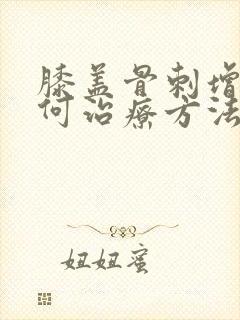 膝盖骨刺增
何治疗方法
妞妞蜜